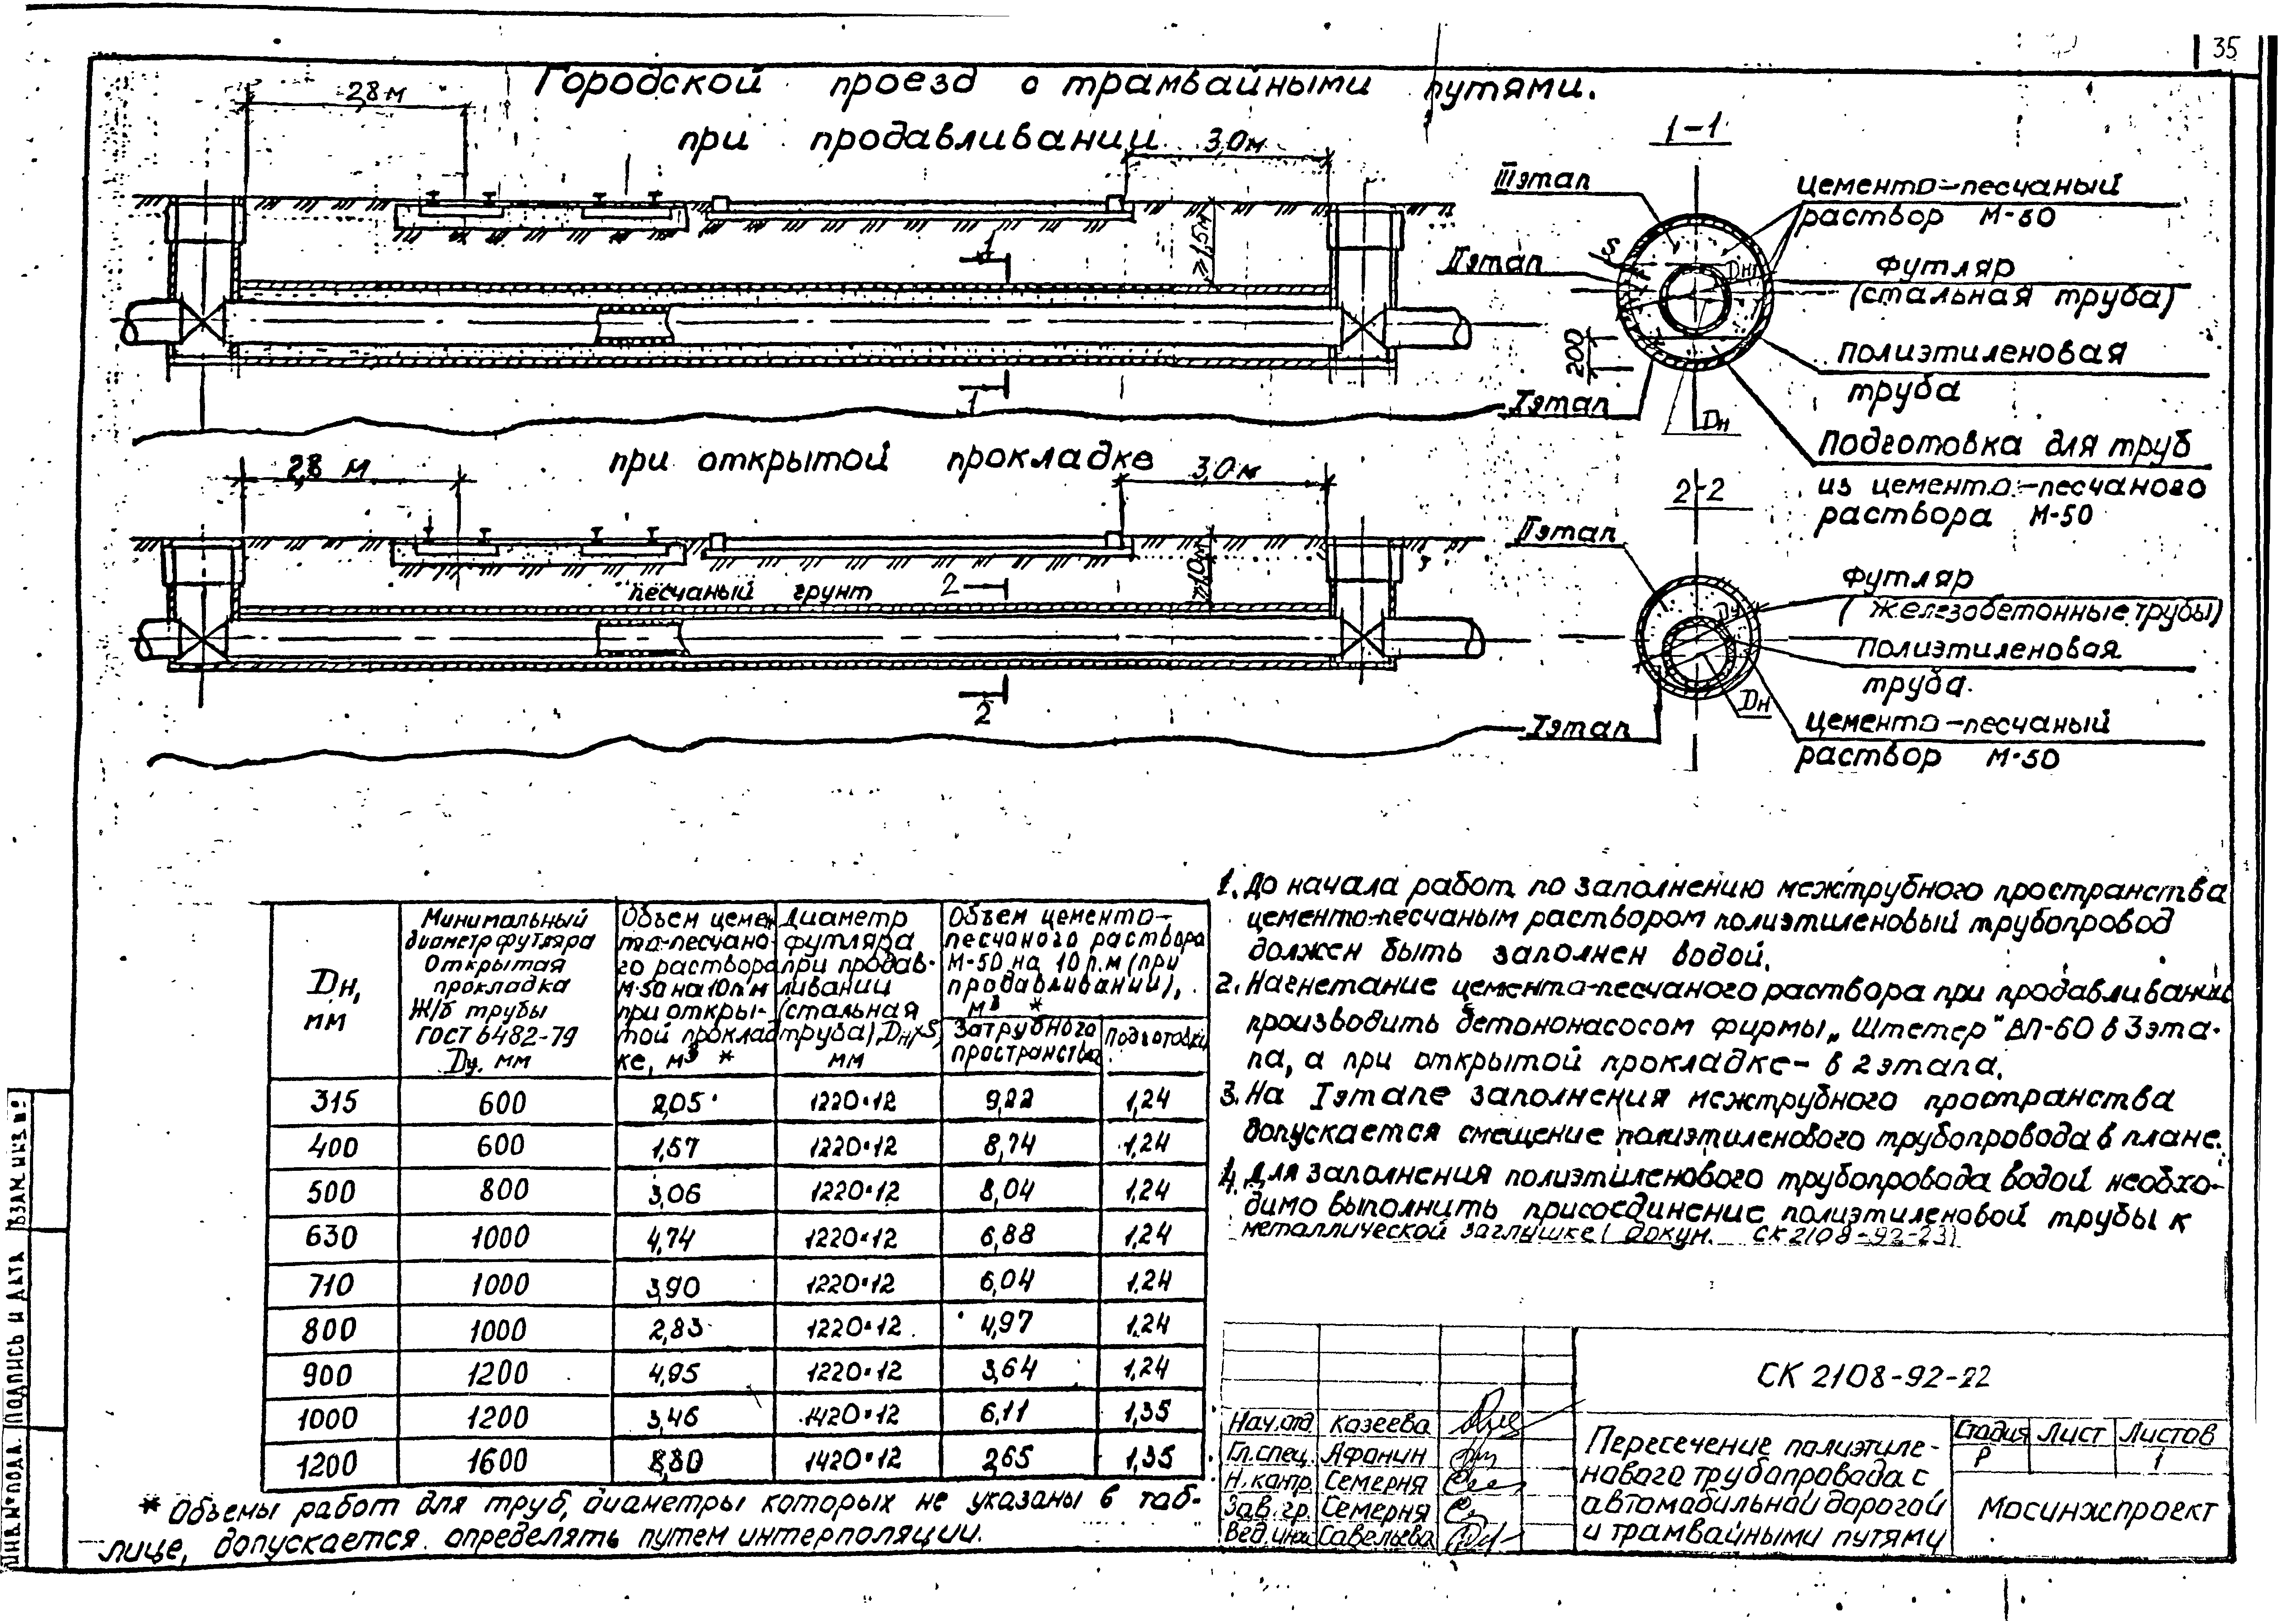 35
Городской проезд с трамвайными путями.
при продавливании
2,8 м
3,0 м
≥1,5м
1
1
1-1
III этап
II этап
I этап
S
Dн
200
Dн
цементо-песчаный
раствор М-50
футляр
(стальная труба)
полиэтиленовая
труба
Подготовка для труб
из цементо-песчаного
раствора М-50
при открытой прокладке
2,8 м
3,0 м
≥1,0м
песчаный грунт
2
2
2-2
II этап
I этап
Dу
Dн
футляр
(железобетонные трубы)
полиэтиленовая
труба.
цементо-песчаный
раствор М-50
Dн, мм
Минимальный диаметр футляра Открытая прокладка Ж/б трубы ГОСТ 6482-79 Dу, мм
Объем цементо-песчаного раствора М-50 на 10 п.м при открытой прокладке, м³ *
Диаметр футляра при продавливании (стальная труба), Dн×S, мм
Объем цементо-песчаного раствора М-50 на 10 п.м (при продавливании), м³ *
Затрубного пространства
Подготовки
315 600 2,05 1220×12 9,22 1,24
400 600 1,57 1220×12 8,74 1,24
500 800 3,06 1220×12 8,04 1,24
630 1000 4,74 1220×12 6,88 1,24
710 1000 3,90 1220×12 6,04 1,24
800 1000 2,83 1220×12 4,97 1,24
900 1200 4,95 1220×12 3,64 1,24
1000 1200 3,46 1420×12 6,11 1,35
1200 1600 8,80 1420×12 2,65 1,35
* Объемы работ для труб, диаметры которых не указаны в таб-
лице, допускается определять путем интерполяции.
1. До начала работ по заполнению межтрубного пространства
цементо-песчаным раствором полиэтиленовый трубопровод
должен быть заполнен водой.
2. Нагнетание цементо-песчаного раствора при продавливании
производить бетононасосом фирмы „Штетер" ВП-60 в 3 эта-
па, а при открытой прокладке - в 2 этапа.
3. На I этапе заполнения межтрубного пространства
допускается смещение полиэтиленового трубопровода в плане.
4. Для заполнения полиэтиленового трубопровода водой необхо-
димо выполнить присоединение полиэтиленовой трубы к
металлической заглушке (докун. СК 2108-92-23)
СК 2108-92-22
Нач.отд Козеева
Гл.спец. Афонин
Н.контр. Семерня
Зав.гр. Семерня
Вед.инж Савельева
Пересечение полиэтиле-
нового трубопровода с
автомобильной дорогой
и трамвайными путями
Стадия Лист Листов
Р 1
Мосинжпроект
ИНВ.№ ПОДЛ. ПОДПИСЬ И ДАТА ВЗАМ.ИНВ.№